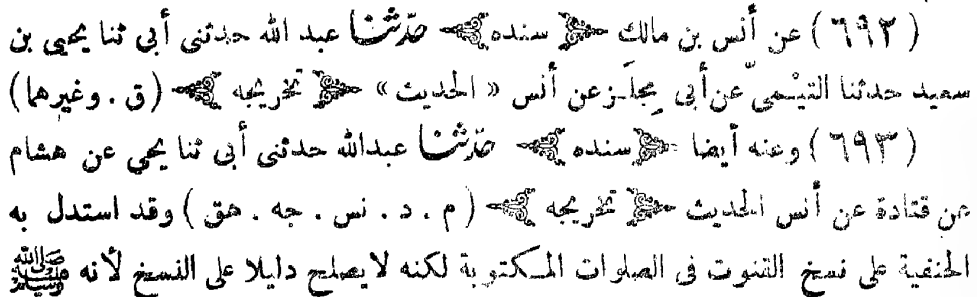 ( ٦٩٢ ) عن أنس بن مالك ﴿ سنده ﴾ حدّثنا عبد الله حدثنى أبى ثنا يحيى بن
سعيد حدثنا التيْمىّ عن أبى مِجلَز عن أنس « الحديث » ﴿ تخريجه ﴾ ( ق . وغيرهما )
( ٦٩٣ ) وعنه أيضا ﴿ سنده ﴾ حدّثنا عبدالله حدثنى أبى ثنا يحيى عن هشام
عن قتادة عن أنس الحديث ﴿ تخريجه ﴾ ( م . د . نس . جه . هق ) وقد استدل به
الحنفية على نسخ القنوت فى الصلوات المكتوبة لكنه لايصلح دليلا على النسخ لأنه ﷺ